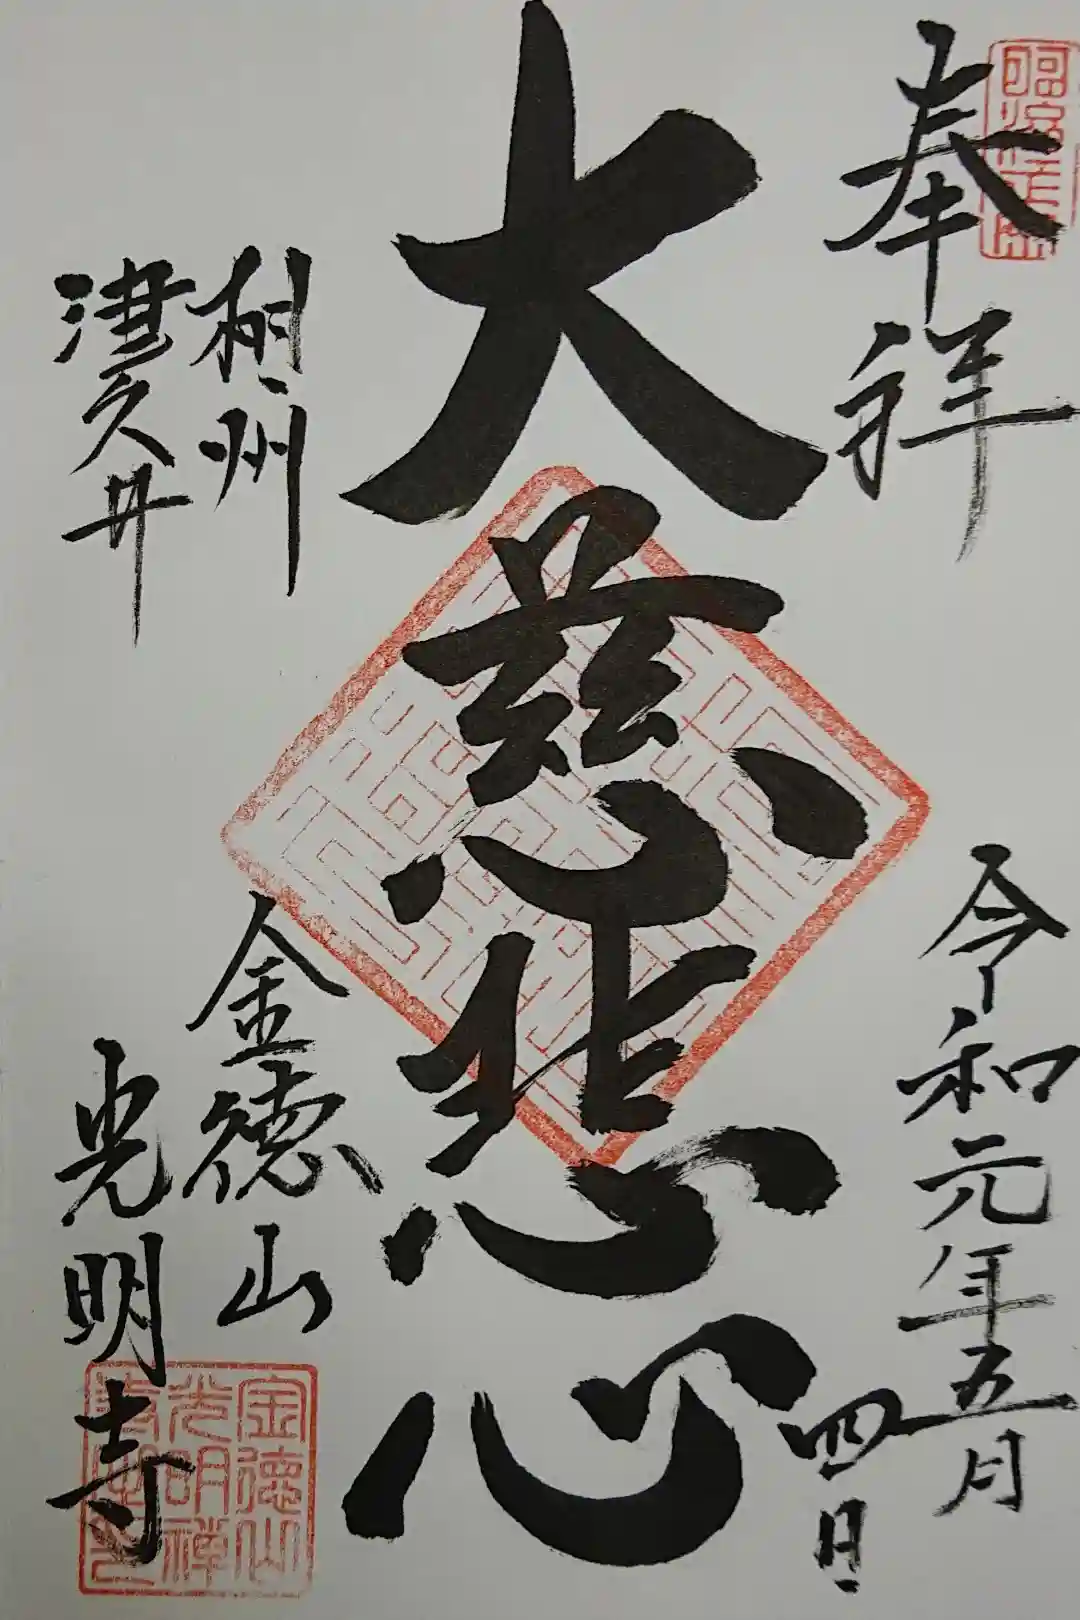 奉拝
令和元年五月
四日
大慈悲心
相州
津久井
金徳山
光明寺
金徳山
光明禅